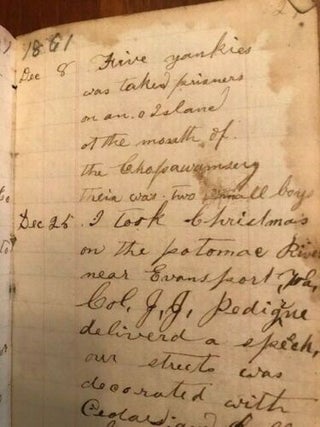 1861
Dec 8 Five yankies
was taken prisners
on an. o Island
at the mouth of.
the Chopawamserg
their was two small boys
Dec 25 I took Christmas
on the potomac River
near Evansport, Va,
Col, J, J, Pedigue
deliverd a speech,
our streets was
decorated with